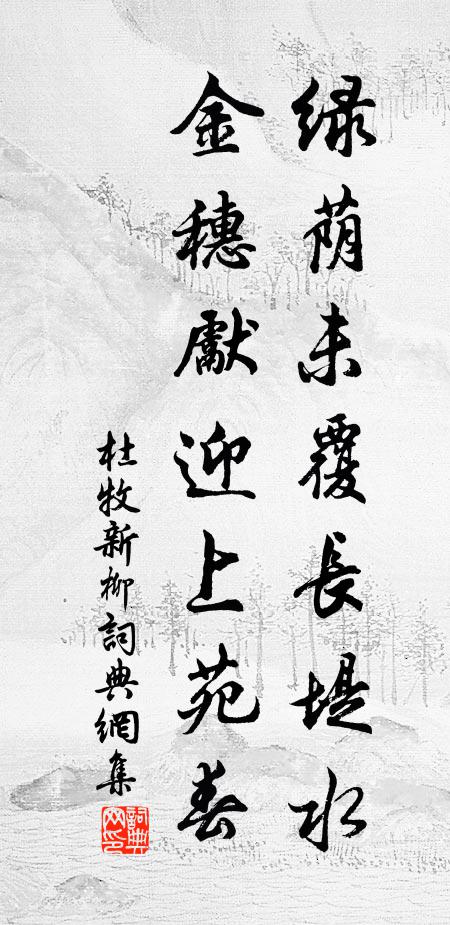 绿荫未覆長堤水
金穗獻迎上苑春
杜牧新柳詞典網集
詞典
网印